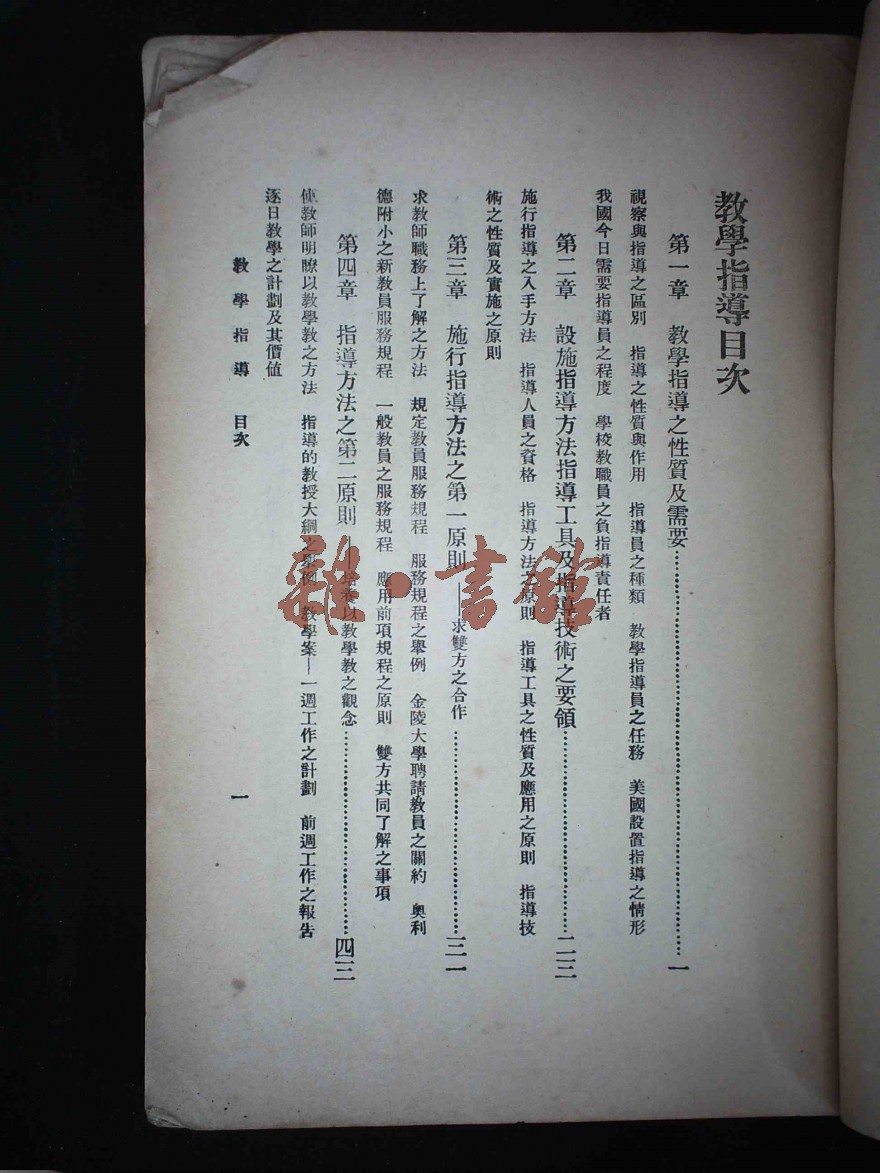 教學指導目次
第一章 教學指導之性質及需要……一
視察與指導之區別 指導之性質與作用 指導員之種類 教學指導員之任務 美國設置指導之情形
我國今日需要指導員之程度 學校教職員之負指導責任者
第二章 設施指導方法指導工具及指導技術之要領……二三
施行指導之入手方法 指導人員之資格 指導方法之原則 指導工具之性質及應用之原則 指導技
術之性質及實施之原則
第三章 施行指導方法之第一原則——求雙方之合作……三一
求教師職務上了解之方法 規定教員服務規程 服務規程之舉例 金陵大學聘請教員之關約 奧利
德附小之新教員服務規程 一般教員之服務規程 應用前項規程之原則 雙方共同了解之事項
第四章 指導方法之第二原則——培養以教學教之觀念……四三
使教師明瞭以教學教之方法 指導的教授大綱之舉例 教學案——一週工作之計劃 前週工作之報告
逐日教學之計劃及其價値
教學指導 目次
一
雜·書館